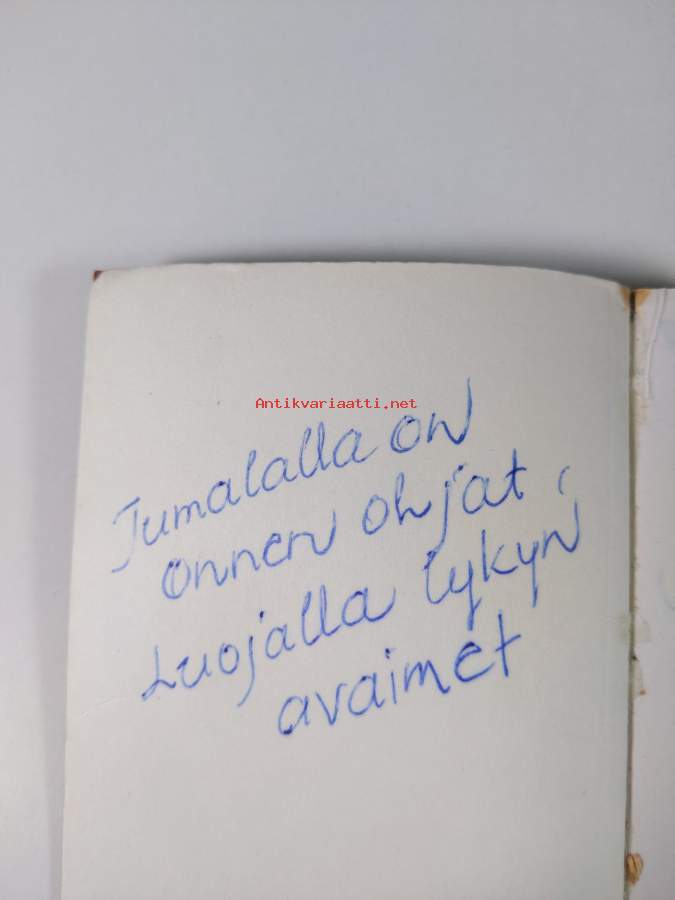 Antikvariaatti.net
Jumalalla on
onnen ohjat,
Luojalla lykyn
avaimet